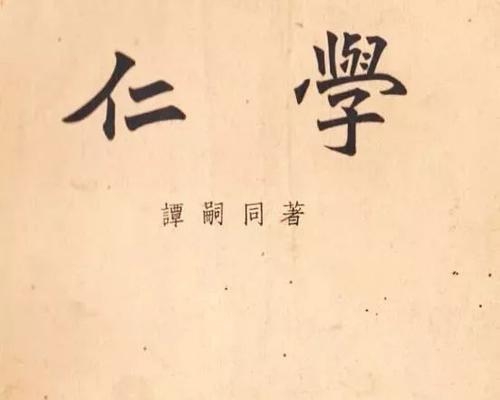 仁學
譚嗣同著